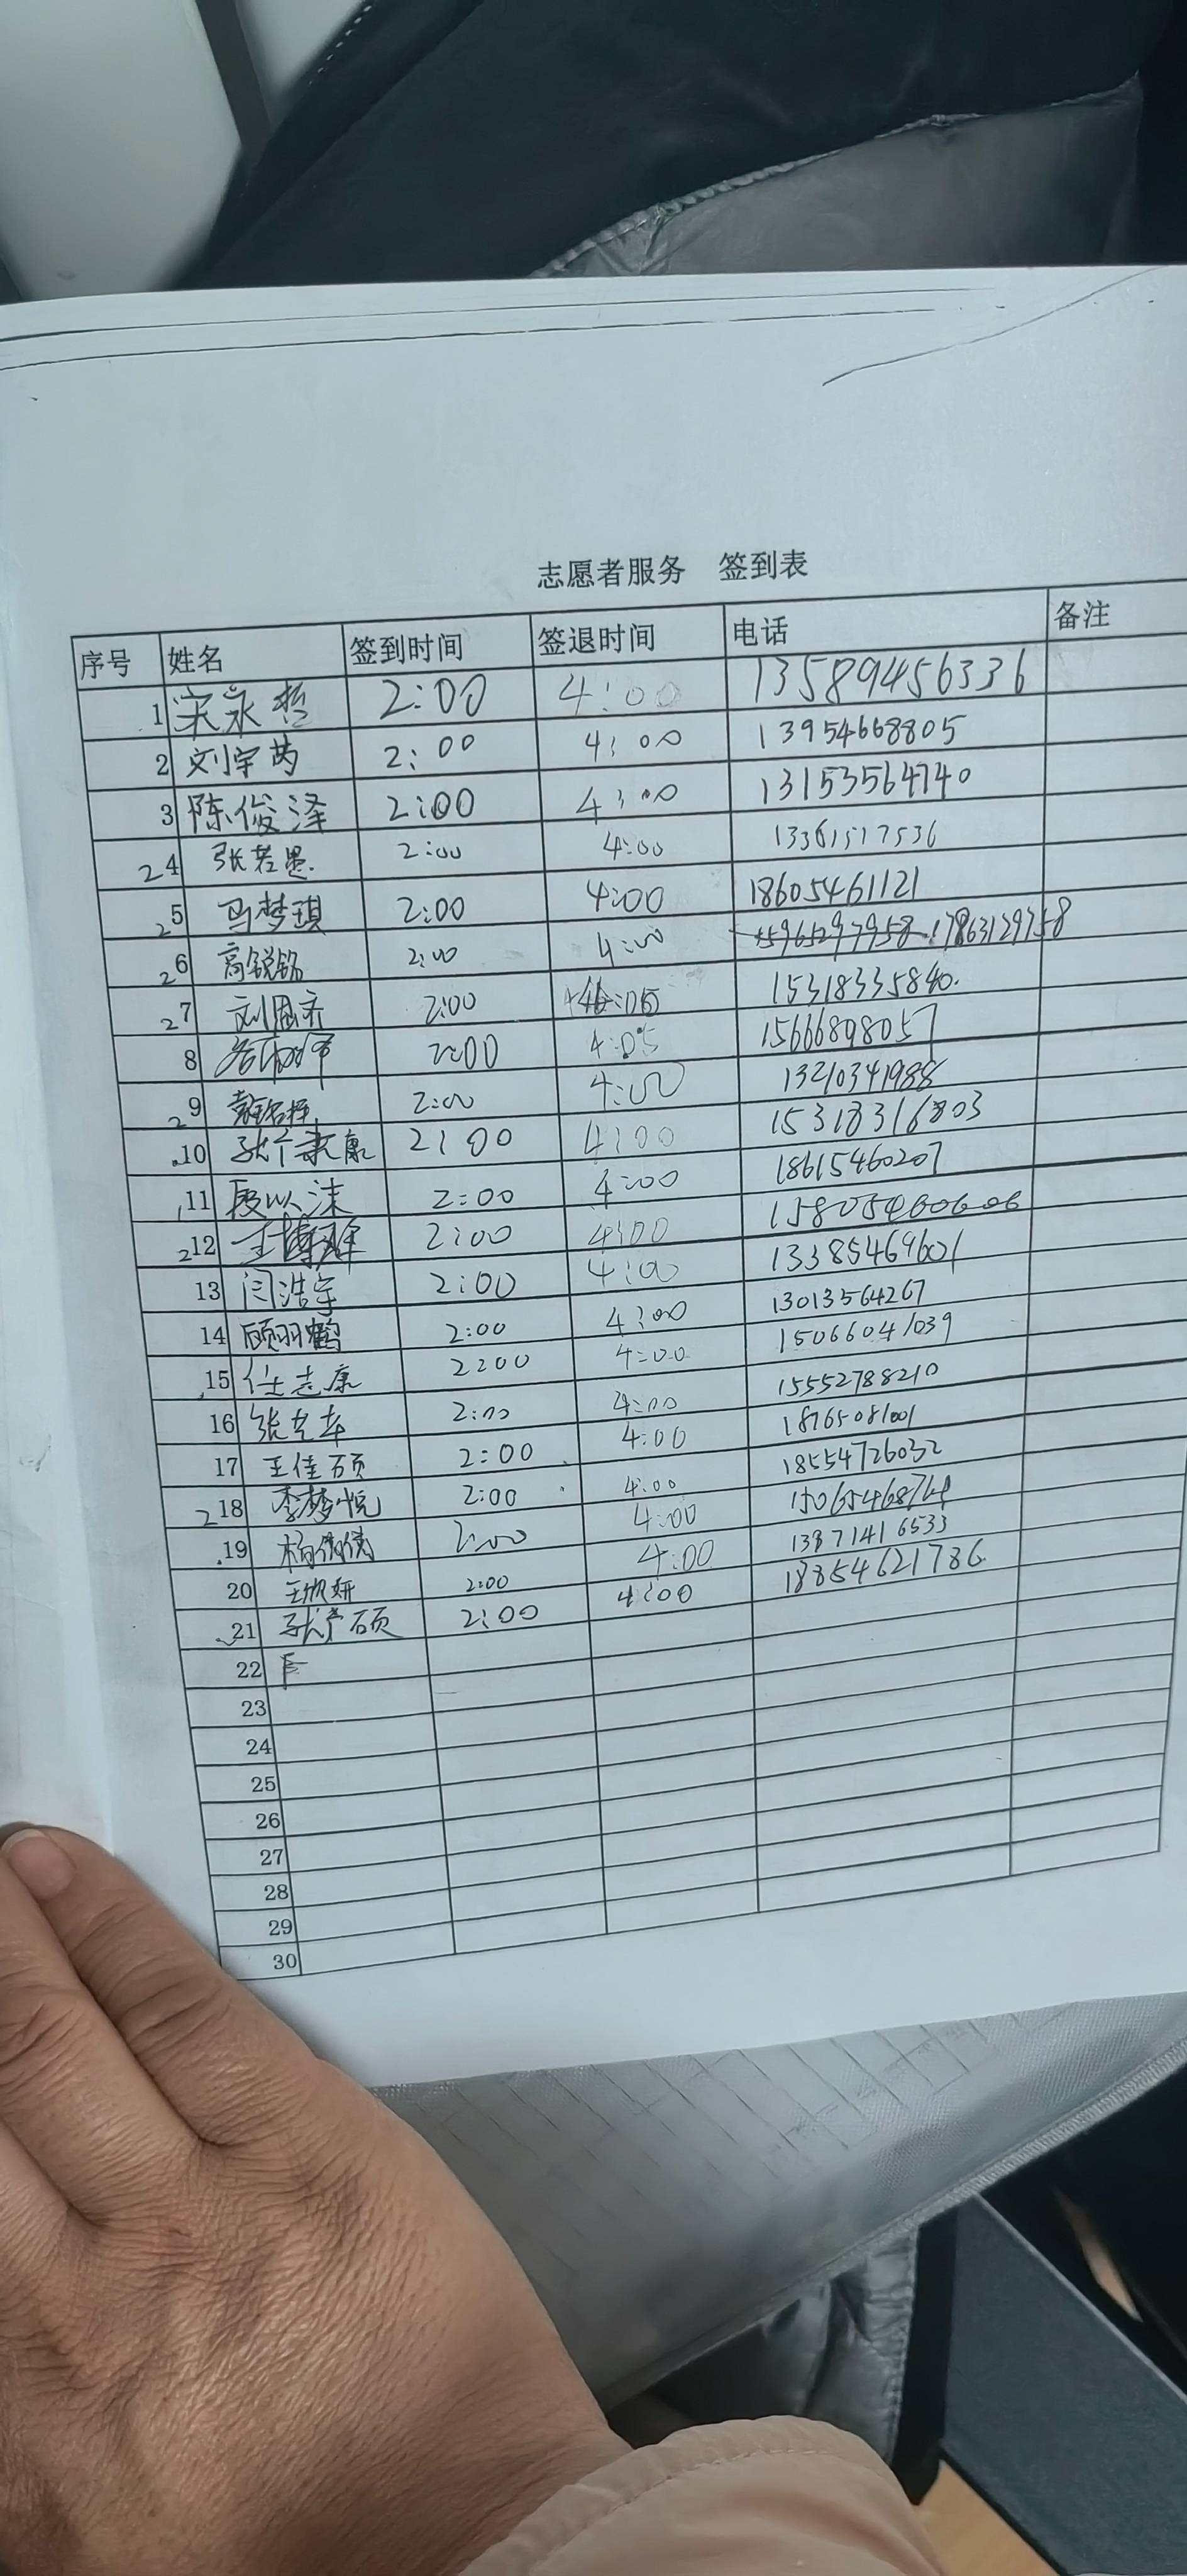 志愿者服务 签到表
序号 姓名 签到时间 签退时间 电话 备注
1 宋永哲 2:00 4:00 13589456336
2 刘宇芮 2:00 4:00 13954668805
3 陈俊泽 2:00 4:00 13153564740
24 张若愚 2:00 4:00 13361517536
25 马梦琪 2:00 4:00 18605461121
26 高锐铭 2:00 4:00 15965297958 17863129758
27 刘恩齐 2:00 15318335840.
8 2:00 4:05 15666898057
29 2:00 4:00 13210341988
.10 2:00 4:00 15318316803
11 段以沫 2:00 4:00 18615460207
212 2:00 4:00
13 闫浩宇 2:00 4:00 13385469601
14 顾羽鹤 2:00 4:00 13013564267
15 任志康 2:00 4:00 15066041039
16 2:00 4:00 15552788210
17 王佳硕 2:00 4:00 18765081001
218 李梦悦 2:00 4:00 18554726032
.19 杨倩倩 2:00 4:00
20 王欣妍 2:00 4:00 13871416533
21 2:00 4:00 18854621786
22
23
24
25
26
27
28
29
30